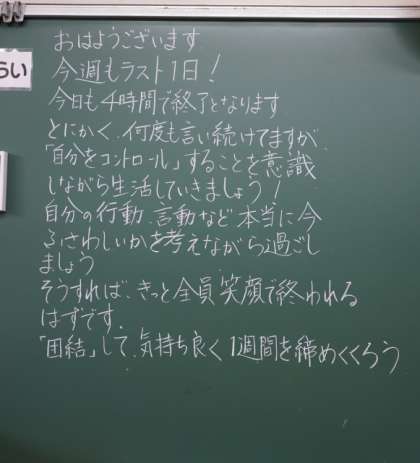 らい
おはようございます
今週もラスト1日!
今日も4時間で終了となります
とにかく、何度も言い続けてますが、
「自分をコントロール」することを意識
しながら生活していきましょう!
自分の行動、言動など本当に今
ふさわしいかを考えながら過ごし
ましょう
そうすれば、きっと全員笑顔で終われる
はずです。
「団結」して、気持ち良く1週間を締めくくろう